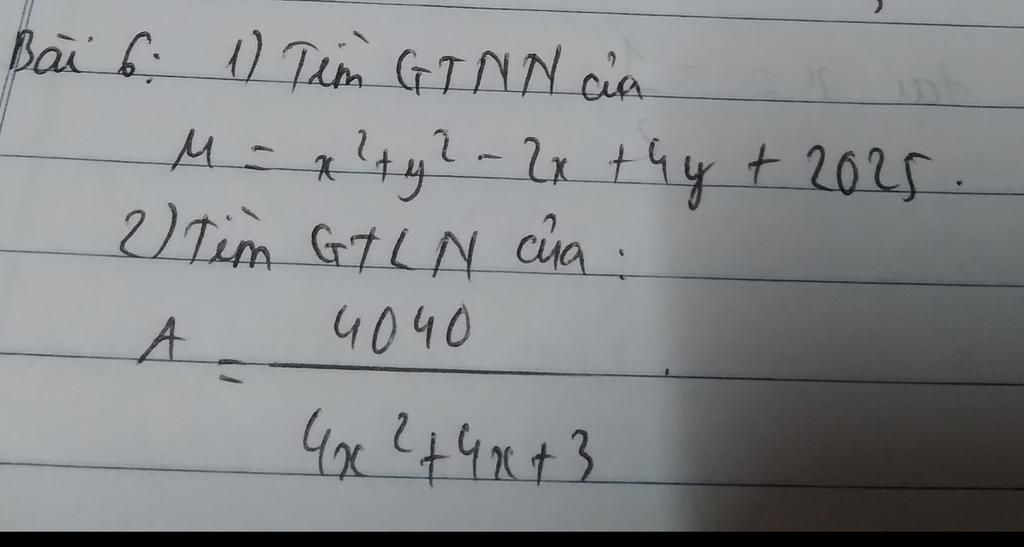 Bài 6: 1) Tìm GTNN của
M = x² + y² - 2x + 4y + 2025.
2) Tìm GTLN của:
A = 4040 / 4x² + 4x + 3